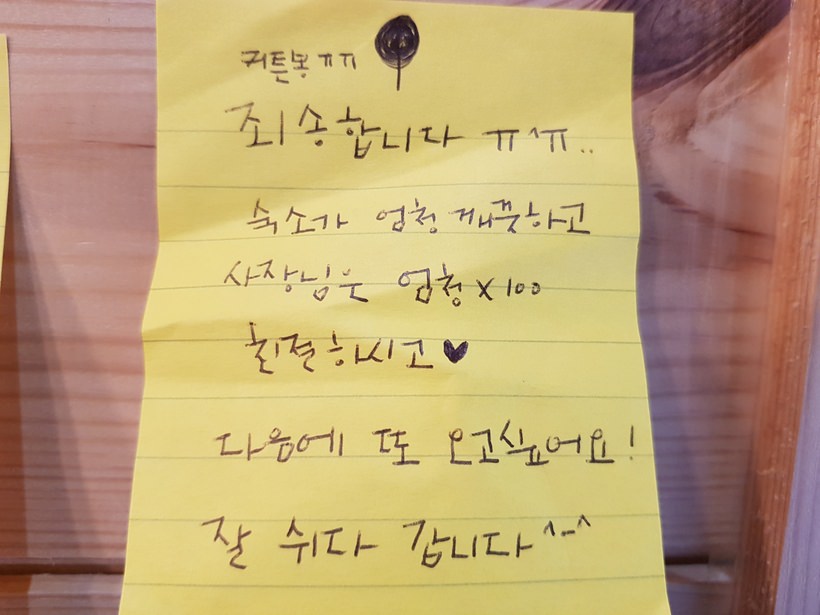 커튼봉 ㅠㅠ
죄송합니다 ㅠ^ㅠ..
숙소가 엄청 깨끗하고
사장님은 엄청 x 100
친절하시고♥
다음에 또 오고싶어요!
잘 쉬다 갑니다^-^